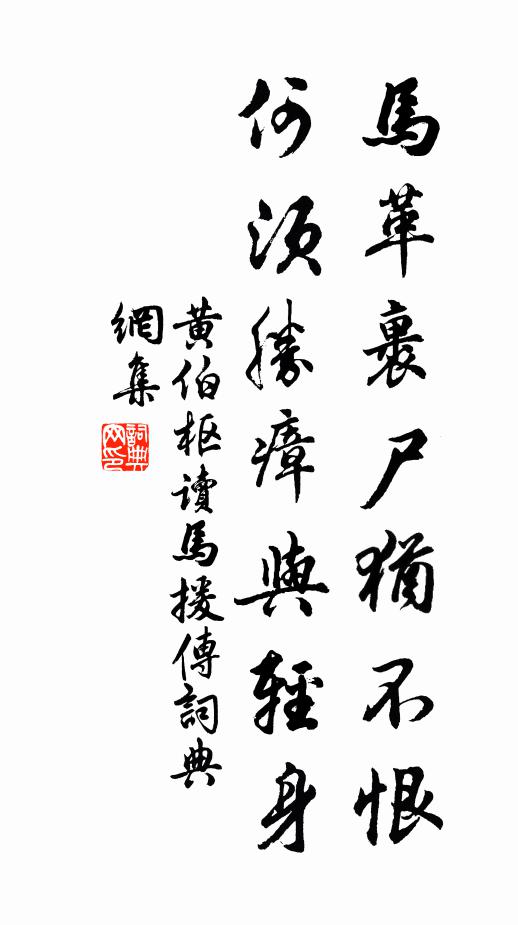 馬革裹尸猶不恨
何須勝瘴與輕身
黄伯枢讀馬援傳詞典
網集
詞典網印